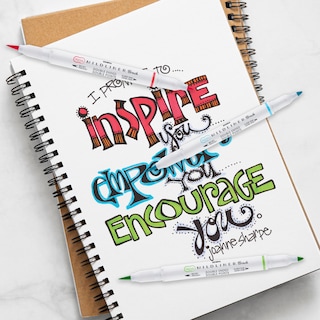 I PROMISE TO...
inspire
you
EMPOWER
YOU
ENCOURAGE
you.
joanne sharpe
MILDLINER Brush
MILDLINER Brush
MILDLINER Brush